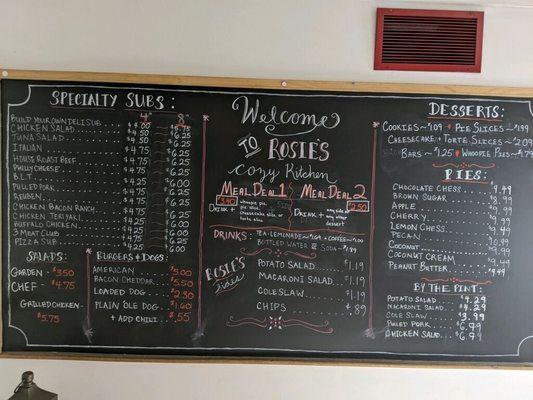 SPECIALTY SUBS:
4" 8"
BUILD YOUR OWN DELI SUB $4.00 $5.75
CHICKEN SALAD $4.50 $6.25
TUNA SALAD $4.50 $6.25
ITALIAN $4.75 $6.25
HOUSE ROAST BEEF $4.75 $6.25
PHILLY CHEESE $4.75 $6.25
B.L.T. $4.25 $6.00
PULLED PORK $4.75 $6.25
REUBEN $4.75 $6.25
CHICKEN BACON RANCH $4.75 $6.25
CHICKEN TERIYAKI $4.75 $6.25
BUFFALO CHICKEN $4.25 $6.00
3 MEAT CLUB $4.75 $6.25
PIZZA SUB $4.25 $6.00
SALADS:
GARDEN - $3.50
CHEF - $4.75
GRILLED CHICKEN
$5.75
BURGERS & DOGS:
AMERICAN $5.00
BACON CHEDDAR $5.50
LOADED DOG $2.30
PLAIN OLE DOG $1.60
+ ADD CHILI $.55
Welcome
TO ROSIE'S
cozy Kitchen
MEAL DEAL 1
DRINK +
whoopie pie,
pie slice,
cheesecake slice or
torte slice
MEAL DEAL 2
$2.50
DRINK +
any side or
any other
dessert
DRINKS: TEA · LEMONADE · COFFEE
BOTTLED WATER SODA
ROSIE'S
sides
POTATO SALAD $1.19
MACARONI SALAD $1.19
COLE SLAW $1.19
CHIPS $.89
DESSERTS:
COOKIES ~ $1.09 PIE SLICES ~ $1.99
CHEESECAKE + TORTE SLICES ~ $2.09
BARS ~ $1.25 WHOOPIE PIES ~ $.79
PIES:
CHOCOLATE CHESS $9.49
BROWN SUGAR $8.99
APPLE $9.99
CHERRY $9.99
LEMON CHESS $9.49
PECAN $10.99
COCONUT $9.99
COCONUT CREAM $9.49
PEANUT BUTTER $9.49
BY THE PINT:
POTATO SALAD $4.29
MACARONI SALAD $4.29
COLE SLAW $3.99
PULLED PORK $6.79
CHICKEN SALAD $6.99